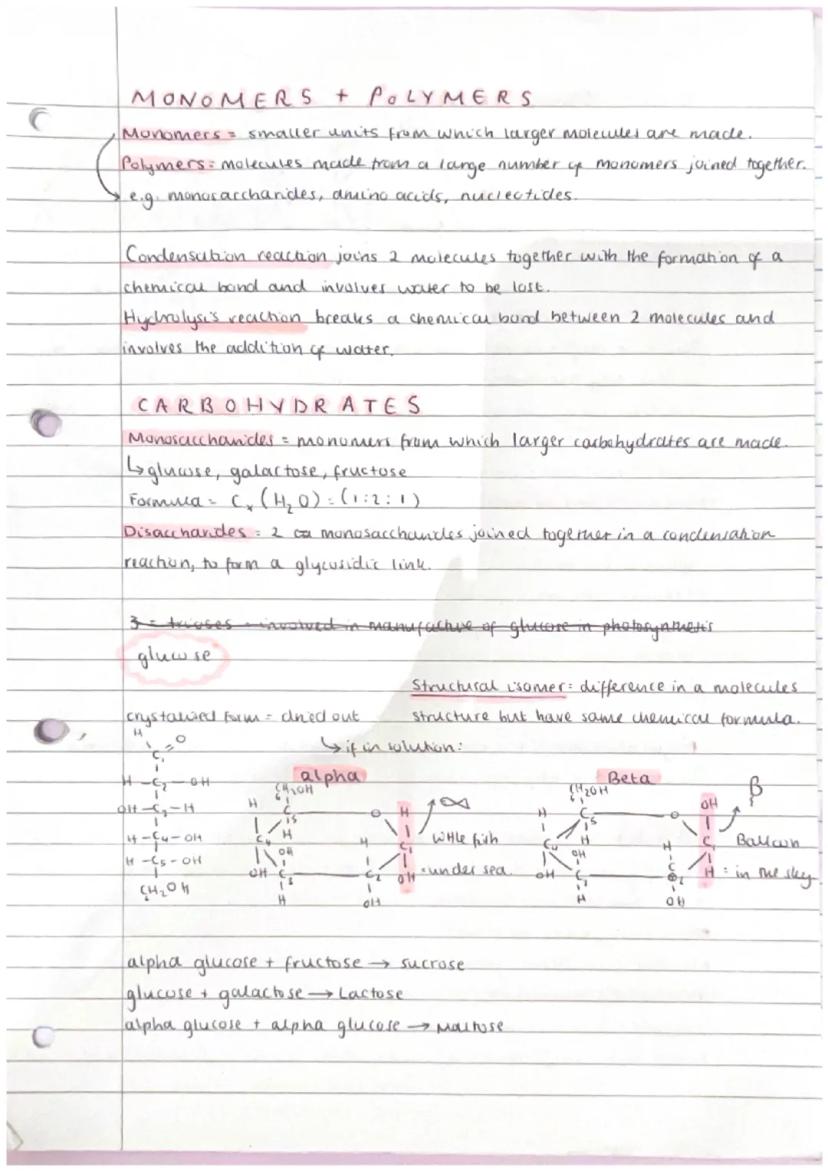 MONOMERS + POLYMERS
Monomers = smaller units from which larger molecules are made.
Polymers = molecules made from a large number of monomers joined together.
e.g. monosaccharides, amino acids, nucleotides.
Condensation reaction joins 2 molecules together with the formation of a
chemical bond and involves water to be lost.
Hydrolysis reaction breaks a chemical bond between 2 molecules and
involves the addition of water.
CARBOHYDRATES
Monosaccharides = monomers from which larger carbohydrates are made.
↳ glucose, galactose, fructose
Formula = Cₓ(H₂O) = (1:2:1)
Disaccharides = 2 monosaccharides joined together in a condensation
reaction, to form a glycosidic link.
3 = trioses - involved in manufacture of glucose in photosynthesis
glucose
Structural isomer = difference in a molecules
crystalised form = dried out structure but have same chemical formula.
↳ if in solution:
alpha Beta
H O
C₁
H - C₂ - OH
OH - C₃ - H
H - C₄ - OH
H - C₅ - OH
CH₂OH
CH₂OH
H C₅ O H
C₄ H H C₁
OH OH
C₃ C₂ OH
H OH
∝
little fish
= under sea.
CH₂OH
H C₅ O OH
C₄ H H C₁
OH OH
C₃ C₂ H
H OH
β
Balloon
= in the sky
alpha glucose + fructose → sucrose
glucose + galactose → Lactose
alpha glucose + alpha glucose → Maltose